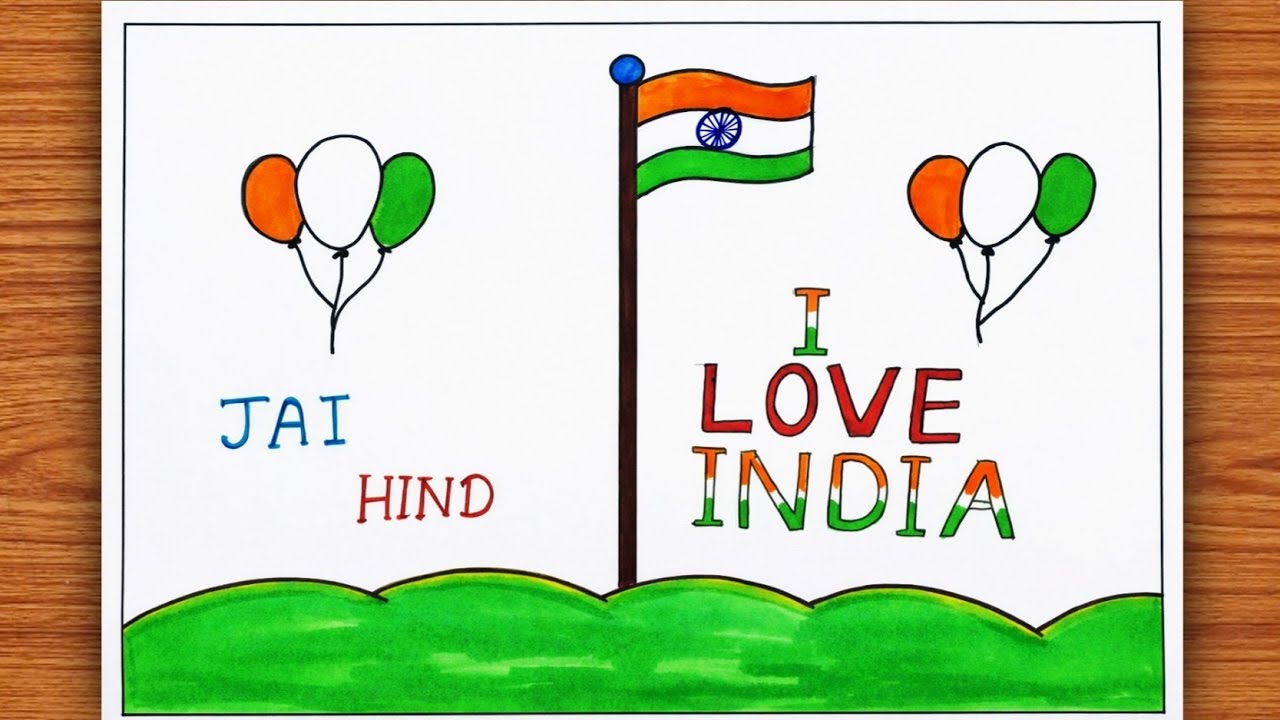 JAI
HIND
I
LOVE
INDIA